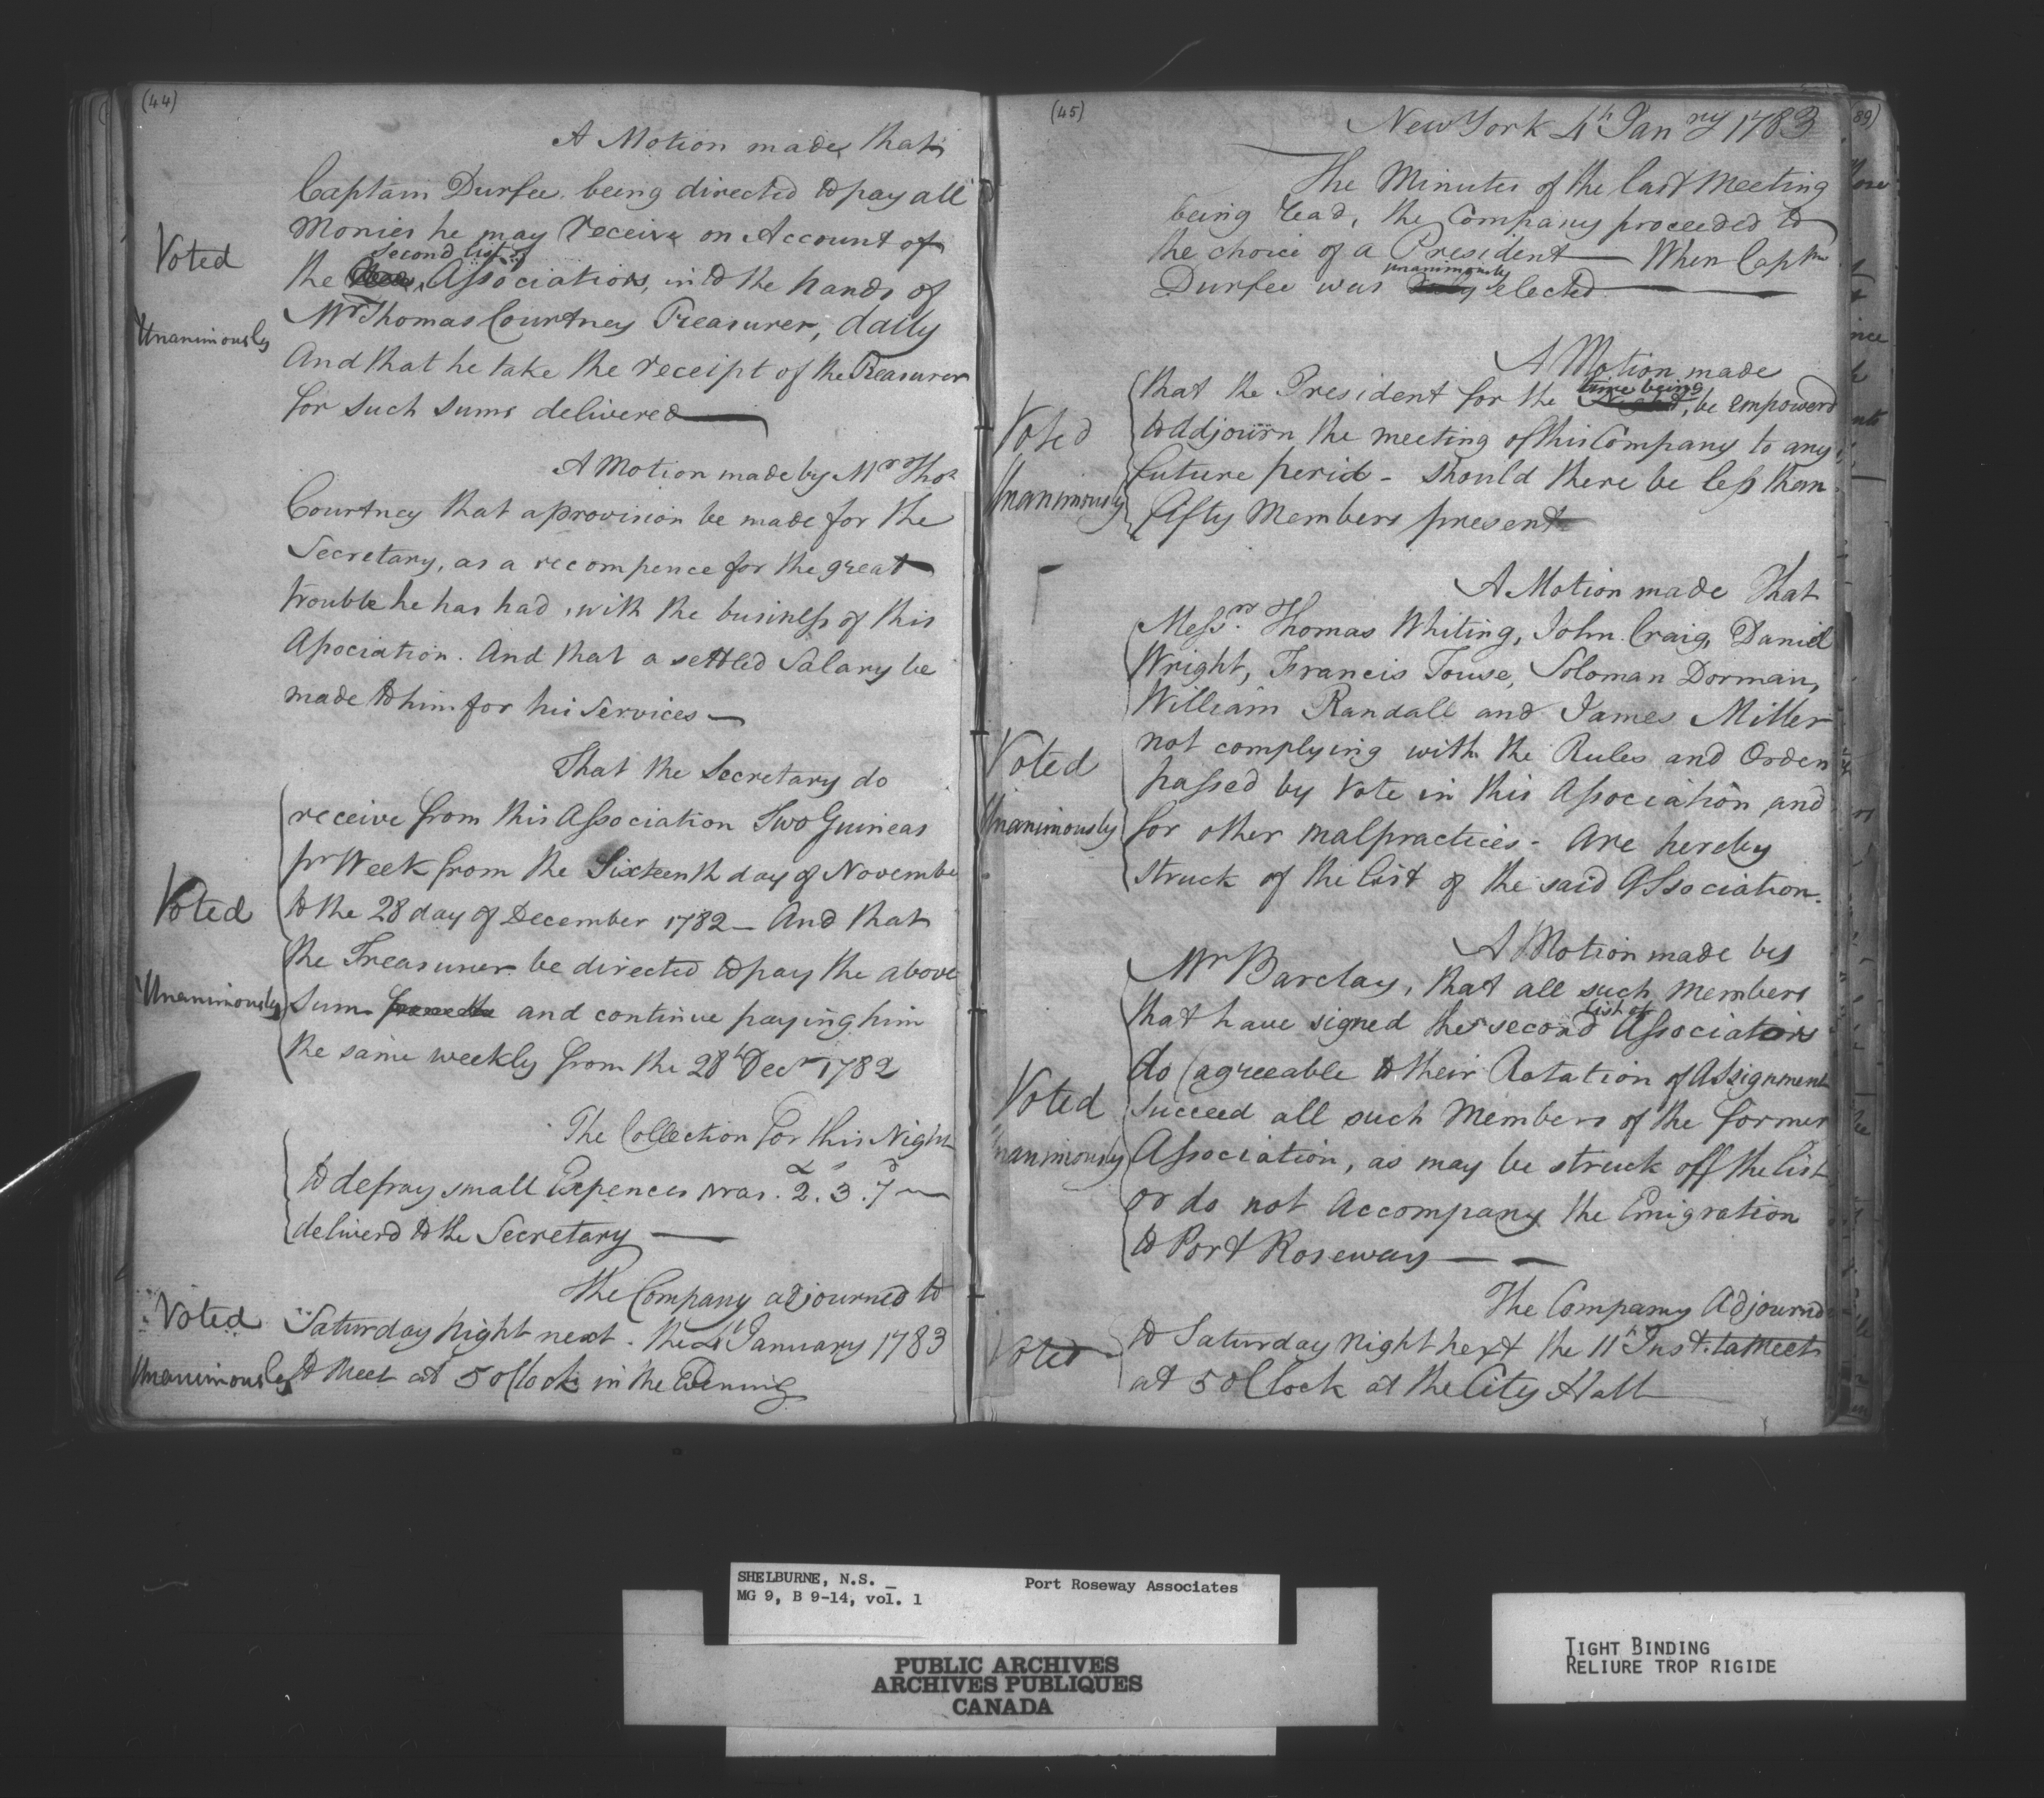 (44)
A Motion made, that
Captain Durfee being directed to pay all
Monies he may receive on Account of
Voted
second list of
the Associators, into the hands of
Mr Thomas Courtney Treasurer, daily
Unanimously
And that he take the receipt of the Treasurer
for such sums delivered
A Motion made by Mr Thos
Courtney that a provision be made for the
Secretary, as a recompence for the great
trouble he has had, with the business of this
Association. And that a settled Salary be
made to him for his Services
That the Secretary do
receive from this Association Two Guineas
pr Week from the Sixteenth day of Novembe
Voted
to the 28 day of December 1782 - And that
the Treasurer be directed to pay the above
Unanimously
Sum and continue paying him
the same weekly from the 28th Decr 1782
The Collection for this Night
£ s d
to defray small Expences was. 2. 3. 7
deliverd to the Secretary
The Company adjourned to
Voted
Saturday Night next. the 4th January 1783
Unanimously
to Meet at 5 oClock in the Evening
(45)
New York 4th Janry 1783
The Minutes of the last Meeting
being read, the Company proceeded to
the choice of a President - When Captn
unanimously
Durfee was elected
A Motion made
time being
that the President for the , be empowerd
Voted
to Adjourn the meeting of this Company to any
future period - should there be less than
Unanimously
fifty Members present
A Motion made That
Messrs Thomas Whiting, John Craig, Daniel
Wright, Francis Touse, Soloman Dorman,
William Randall and James Miller
Voted
not complying with the Rules and Orders
passed by Vote in this Association and
Unanimously
for other malpractices - Are hereby
struck of the list of the said Association.
A Motion made by
Mr Barclay, that all such Members
list of
that have signed the second Associators
do (agreeable to their Rotation of Assignment
Voted
succeed all such Members of the former
Unanimously
Association, as may be struck off the list
or do not Accompany the Emigration
to Port Roseway
The Company Adjournd
Voted
to Saturday Night next the 11th Inst. to Meet
at 5 oClock at the City Hall
(89)
SHELBURNE, N.S. _
Port Roseway Associates
MG 9, B 9-14, vol. 1
PUBLIC ARCHIVES
ARCHIVES PUBLIQUES
CANADA
TIGHT BINDING
RELIURE TROP RIGIDE